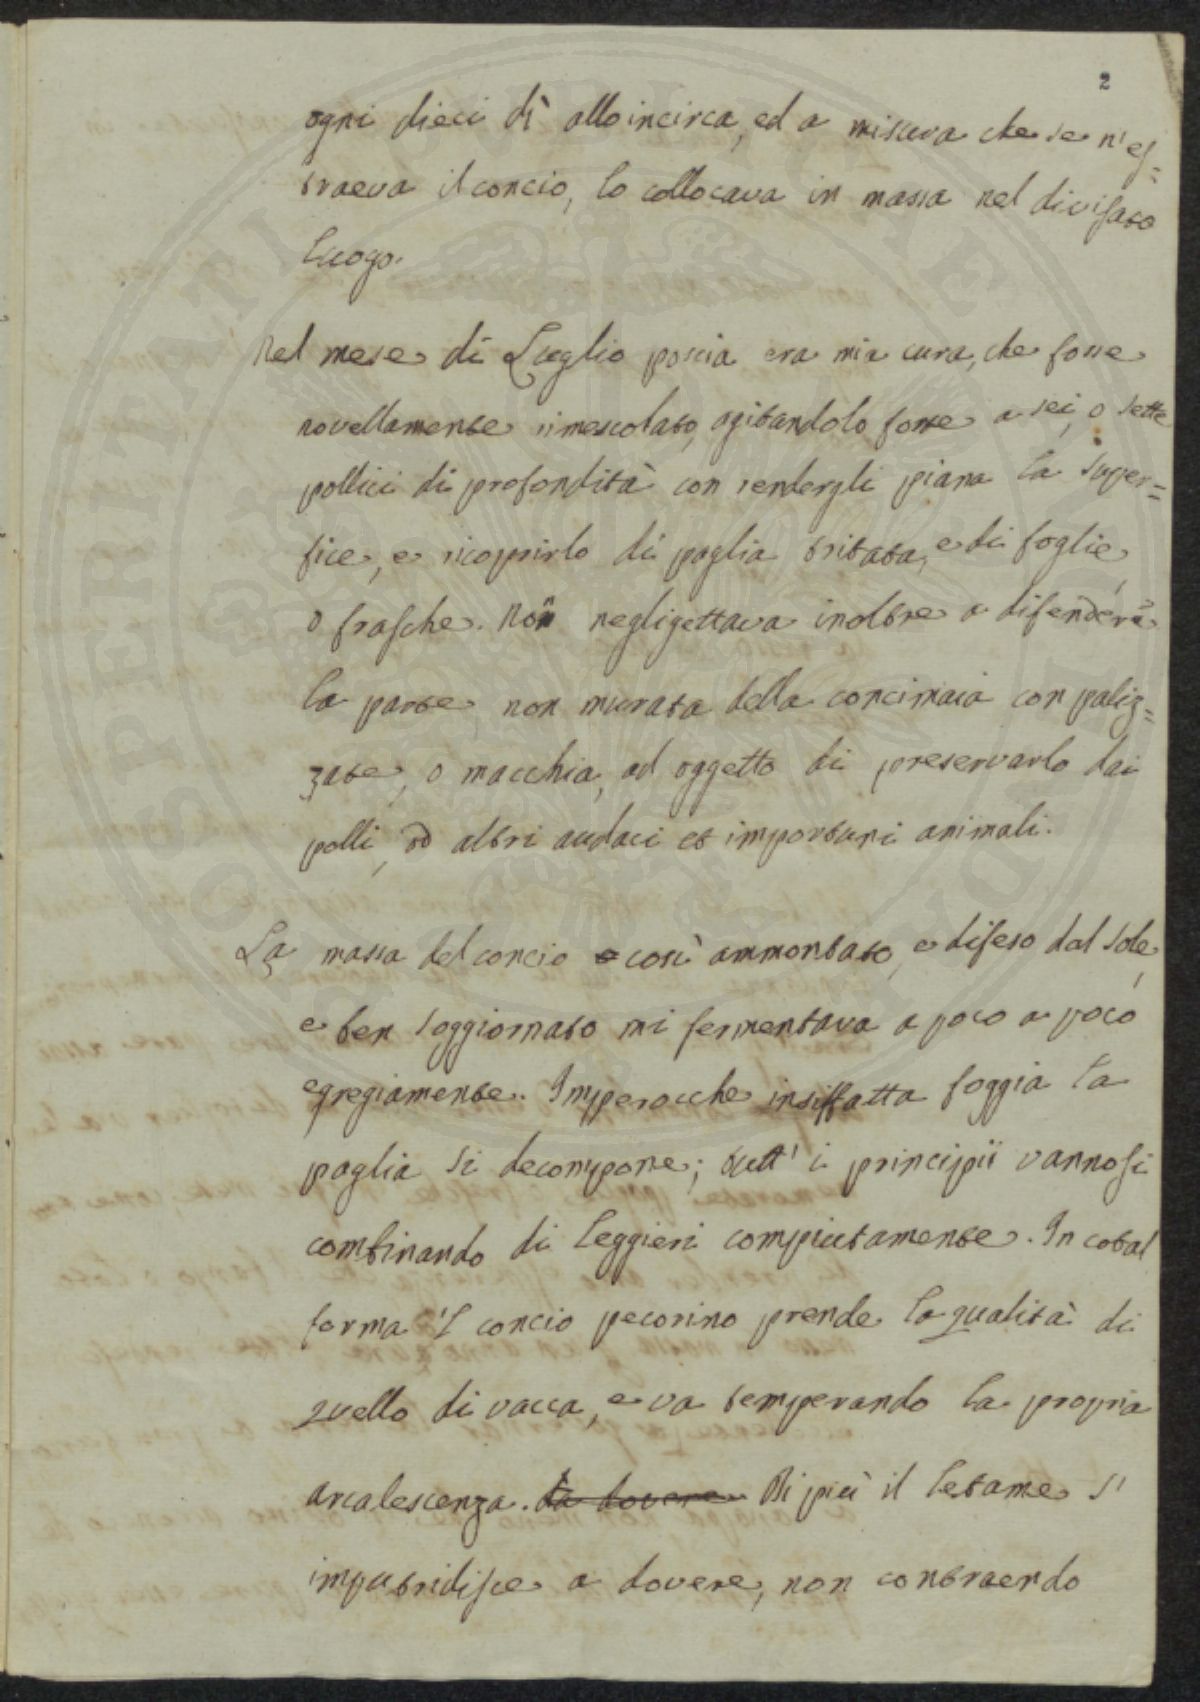 2
ogni dieci dì allo incirca, ed a misura che se n'es=
traeva il concio, lo collocava in massa nel divisato
luogo.
Nel mese di Luglio poscia era mia cura, che fosse
novellamente rimescolato, agitandolo forse a sei, o sette
pollici di profondità con rendergli piana la super=
fice, e ricoprirlo di paglia tritata, e di foglie,
o frasche. Non negligettava inoltre a difendere
la parte non murata della concimaia con paliz=
zate, o macchia, ad oggetto di preservarlo dai
polli, od altri audaci et importuni animali.
La massa del concio così ammontato, e difeso dal sole,
e ben soggiornato mi fermentava a poco a poco
egregiamente. Imperocche insiffatta foggia la
paglia si decompone; tutt' i principii vannosi
combinando di leggieri compiutamente. In cotal
forma 'l concio pecorino prende la qualità di
quello di vacca, e va temperando la propria
arcalescenza. da dovere Di più il letame s'
imputridisce a dovere, non contraendo
PROSPERITATI PUBLICAE AUGENDAE